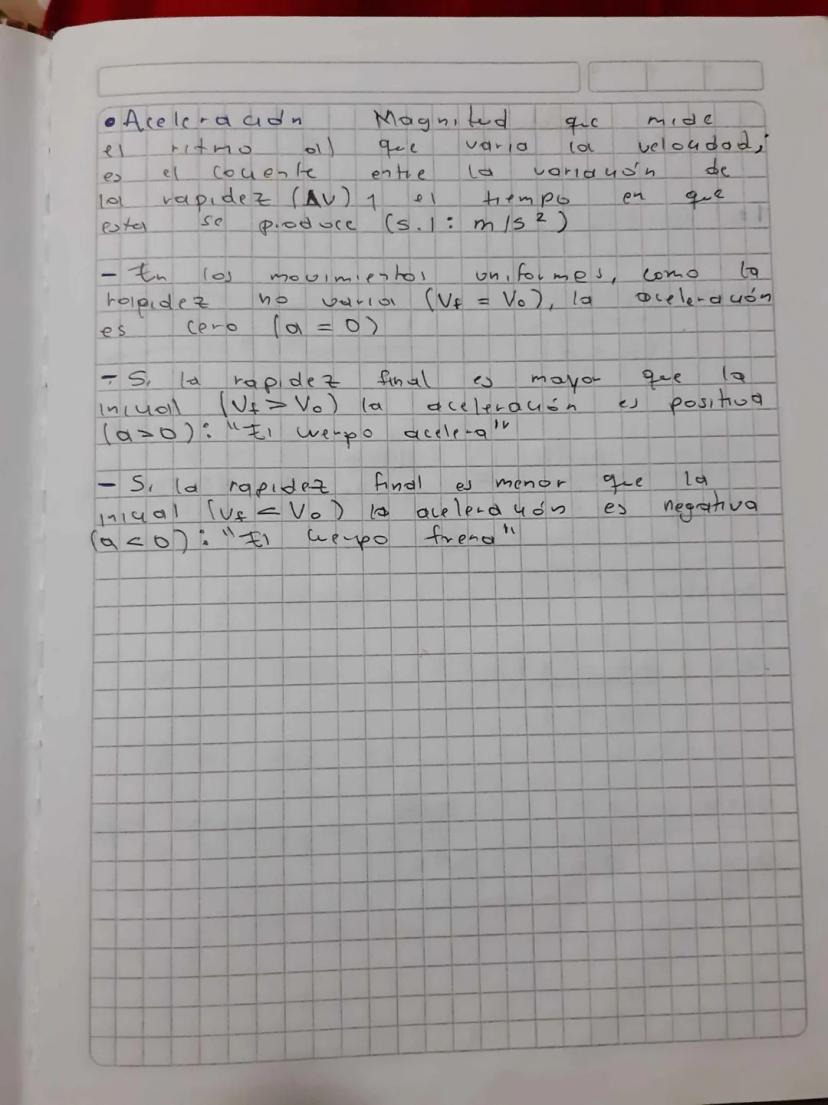 • Aceleración Magnitud que mide
el ritmo al que varia la velocidad,
es el cociente entre la variación de
la rapidez (ΔV) y el tiempo en que
esta se produce (s.I: m/s²)
- En los movimientos uniformes, como la
rapidez no varia (Vf = Vo), la aceleración
es cero (a = 0)
- Si la rapidez final es mayor que la
inicial (Vf > Vo) la aceleración es positiva
(a > 0): "El cuerpo acelera"
- Si la rapidez final es menor que la
inicial (Vf < Vo) la aceleración es negativa
(a < 0): "El cuerpo frena"